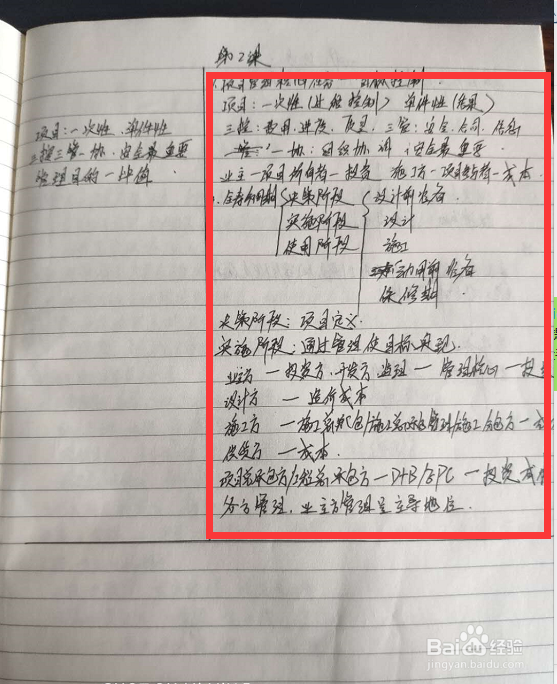 第2课
项目管理核心任务—目标控制
项目:一次性(过程控制) 单件性(结果)
三控:费用、进度、质量,三管:安全、合同、信息
一协:组织协调,安全最重要
业主—项目所有者—投资 施工方—项目参与者—成本
决策阶段 设计前准备
实施阶段 设计
使用阶段 施工
动用前准备
保修期
决策阶段:项目定义
实施阶段:通过管理使目标实现.
业主方—投资方、开发方、监理—管理核心—投
设计方—造价成本
施工方—施工总承包/施工总承包管理/施工分包方—成
供货方—成本.
项目总承包方/工程总承包方—D+B/EPC—投资成
各方管理,业主方管理是主导地位.
项目:一次性、单件性
三控三管一协,安全最重要
管理目的—增值
Baidu经验
jingyan.baidu.com